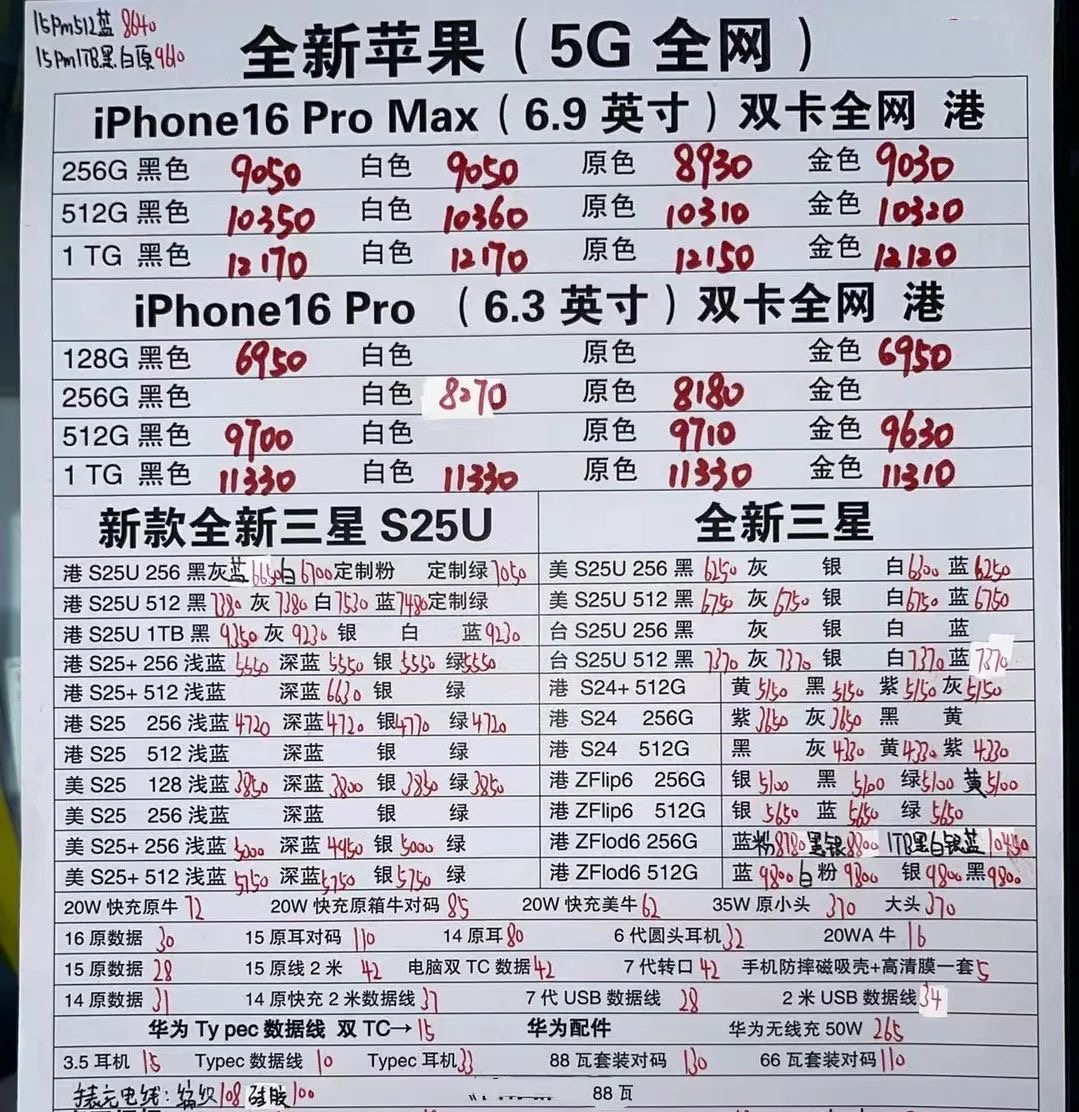 15Pm512蓝 8640
15Pm1TB黑白原9660
全新苹果（5G 全网）
iPhone16 Pro Max（6.9 英寸）双卡全网 港
256G 黑色 9050 白色 9050 原色 8930 金色 9030
512G 黑色 10350 白色 10360 原色 10310 金色 10320
1 TG 黑色 12170 白色 12170 原色 12150 金色 12120
iPhone16 Pro （6.3 英寸）双卡全网 港
128G 黑色 6950 白色 原色 金色 6950
256G 黑色 白色 8270 原色 8180 金色
512G 黑色 9700 白色 原色 9710 金色 9630
1 TG 黑色 11330 白色 11330 原色 11330 金色 11310
新款全新三星 S25U 全新三星
港 S25U 256 黑灰蓝 6650白 6700定制粉 定制绿 7050 美 S25U 256 黑 6250 灰 银 白6300 蓝 6250
港 S25U 512 黑 7380 灰 7380 白 7530 蓝 7480定制绿 美 S25U 512 黑 6750 灰 6750 银 白6750 蓝 6750
港 S25U 1TB 黑 9350 灰 9230 银 白 蓝 9230 台 S25U 256 黑 灰 银 白 蓝
港 S25+ 256 浅蓝 5550 深蓝 5550 银 5550 绿5550 台 S25U 512 黑 7370 灰 7370 银 白7370 蓝 7370
港 S25+ 512 浅蓝 深蓝 6630 银 绿 港 S24+ 512G 黄 5150 黑 5150 紫 5150 灰 5150
港 S25 256 浅蓝 4720 深蓝 4720 银4770 绿 4720 港 S24 256G 紫 3650 灰 3650 黑 黄
港 S25 512 浅蓝 深蓝 银 绿 港 S24 512G 黑 灰 4330 黄 4330 紫 4330
美 S25 128 浅蓝 3850 深蓝 3800 银 3850 绿 3850 港 ZFlip6 256G 银 5100 黑 5100 绿5100 黄5100
美 S25 256 浅蓝 深蓝 银 绿 港 ZFlip6 512G 银 5650 蓝 5650 绿 5650
美 S25+ 256 浅蓝 5000 深蓝 4950 银 5000 绿 港 ZFlod6 256G 蓝粉8780黑银8800 1TB黑白银蓝10450
美 S25+ 512 浅蓝 5750 深蓝5750 银5750 绿 港 ZFlod6 512G 蓝 9800白粉 9800 银 9800黑9800
20W 快充原牛 72 20W 快充原箱牛对码 85 20W 快充美牛 62 35W 原小头 370 大头 370
16 原数据 30 15 原耳对码 110 14 原耳 80 6 代圆头耳机 32 20WA 牛 16
15 原数据 28 15 原线 2 米 42 电脑双 TC 数据 42 7 代转口 42 手机防摔磁吸壳+高清膜一套 5
14 原数据 31 14 原快充 2 米数据线 37 7 代 USB 数据线 28 2 米 USB 数据线 34
华为 Ty pec 数据线 双 TC→ 15 华为配件 华为无线充 50W 265
3.5 耳机 15 Typec 数据线 10 Typec 耳机 33 88 瓦套装对码 130 66 瓦套装对码 110
充电线：编织108 硅胶100 88 瓦